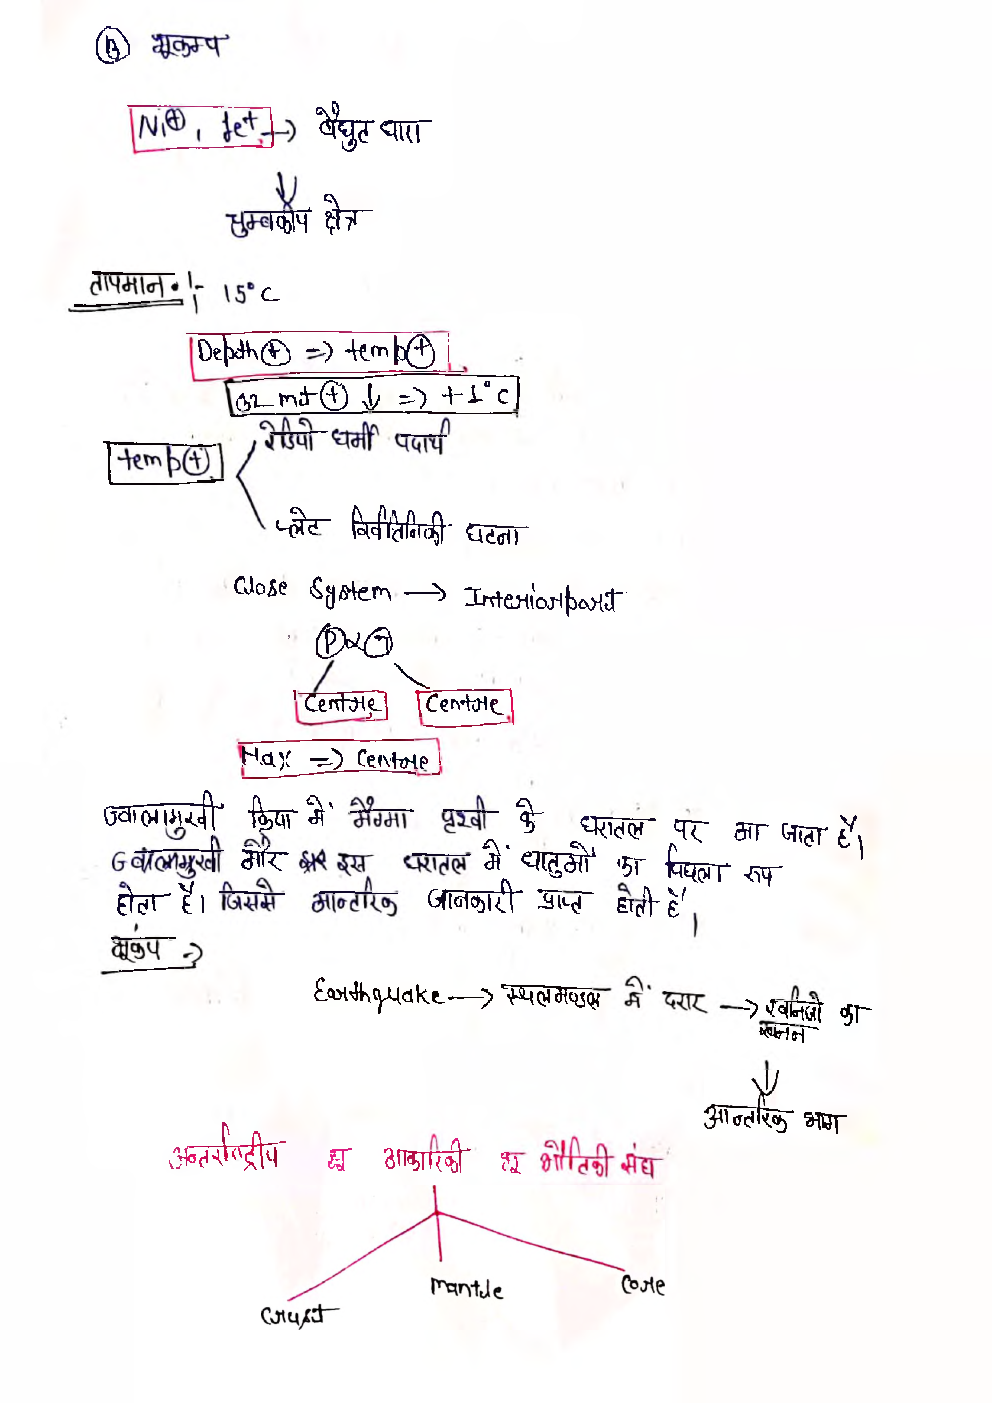 B भूकम्प
Ni⊕, fe+ → वैद्युत धारा
↓
चुम्बकीय क्षेत्र
तापमान :- 15°C
Depth⊕ => temp⊕
32 mt⊕ ↓ => +1°C
temp⊕
रेडियो धर्मी पदार्थ
प्लेट विवर्तिनिकी घटना
Close System → Interior part
P∝T
Centre Centre
Max => Centre
ज्वालामुखी क्रिया में मैग्मा पृथ्वी के धरातल पर आ जाता है।
ज्वालामुखी और इस धरातल में धातुओं का पिघला रूप
होता है। जिससे आन्तरिक जानकारी प्राप्त होती है।
भूकंप →
Earthquake → स्थलमण्डल में दरार → खनिजो का
खनन
↓
आन्तरिक भाग
अन्तर्राष्ट्रीय भू आकारिकी भू भौतिकी संघ
Crust Mantle Core